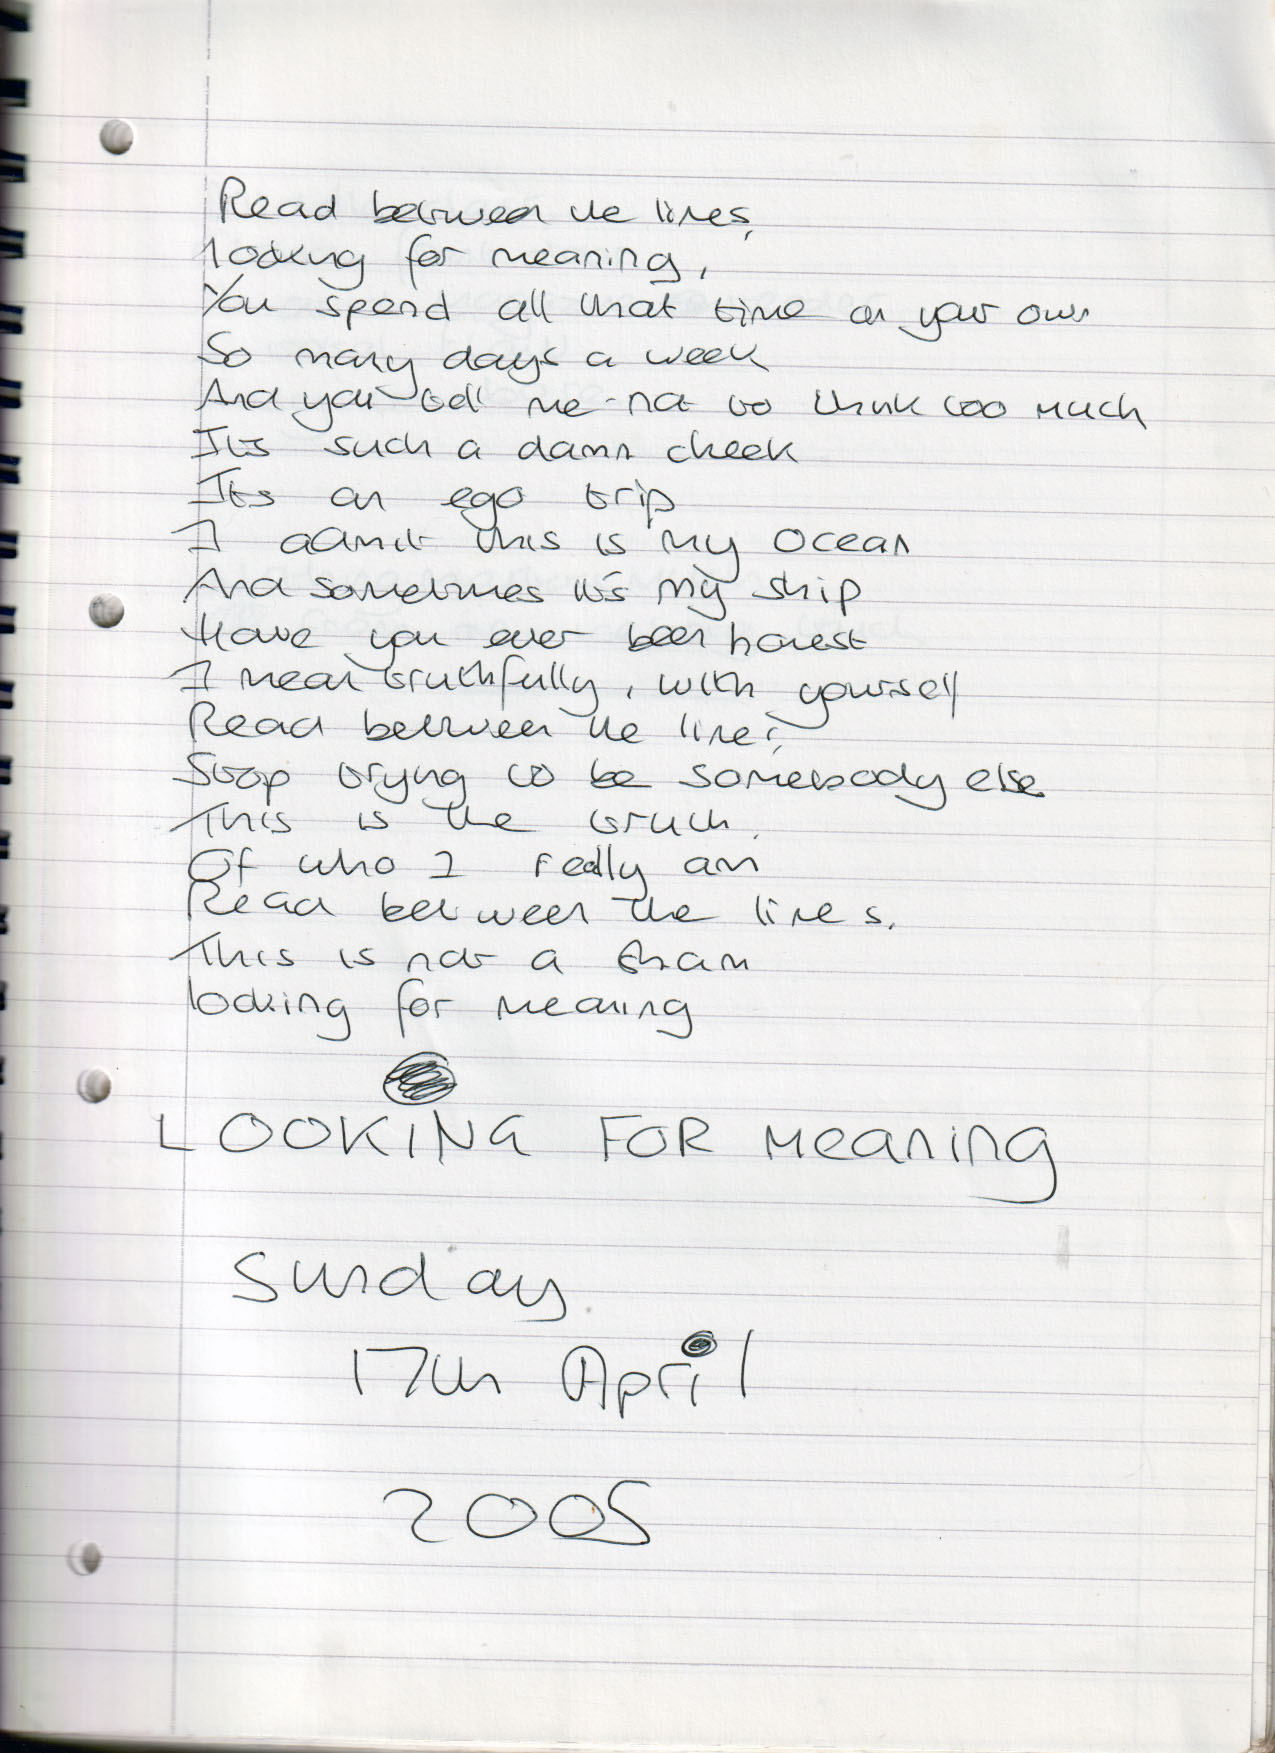 Read between the lines,
looking for meaning,
You spend all that time on your own
So many days a week
And you tell me not to think too much
Its such a damn cheek
Its an ego trip
I admit this is my ocean
And sometimes it's my ship
Have you ever been honest
I mean truthfully, with yourself
Read between the lines,
Stop trying to be somebody else
This is the truth.
Of who I really am
Read between the lines.
This is not a sham
looking for meaning
LOOKING FOR Meaning
Sunday
17th April
2005